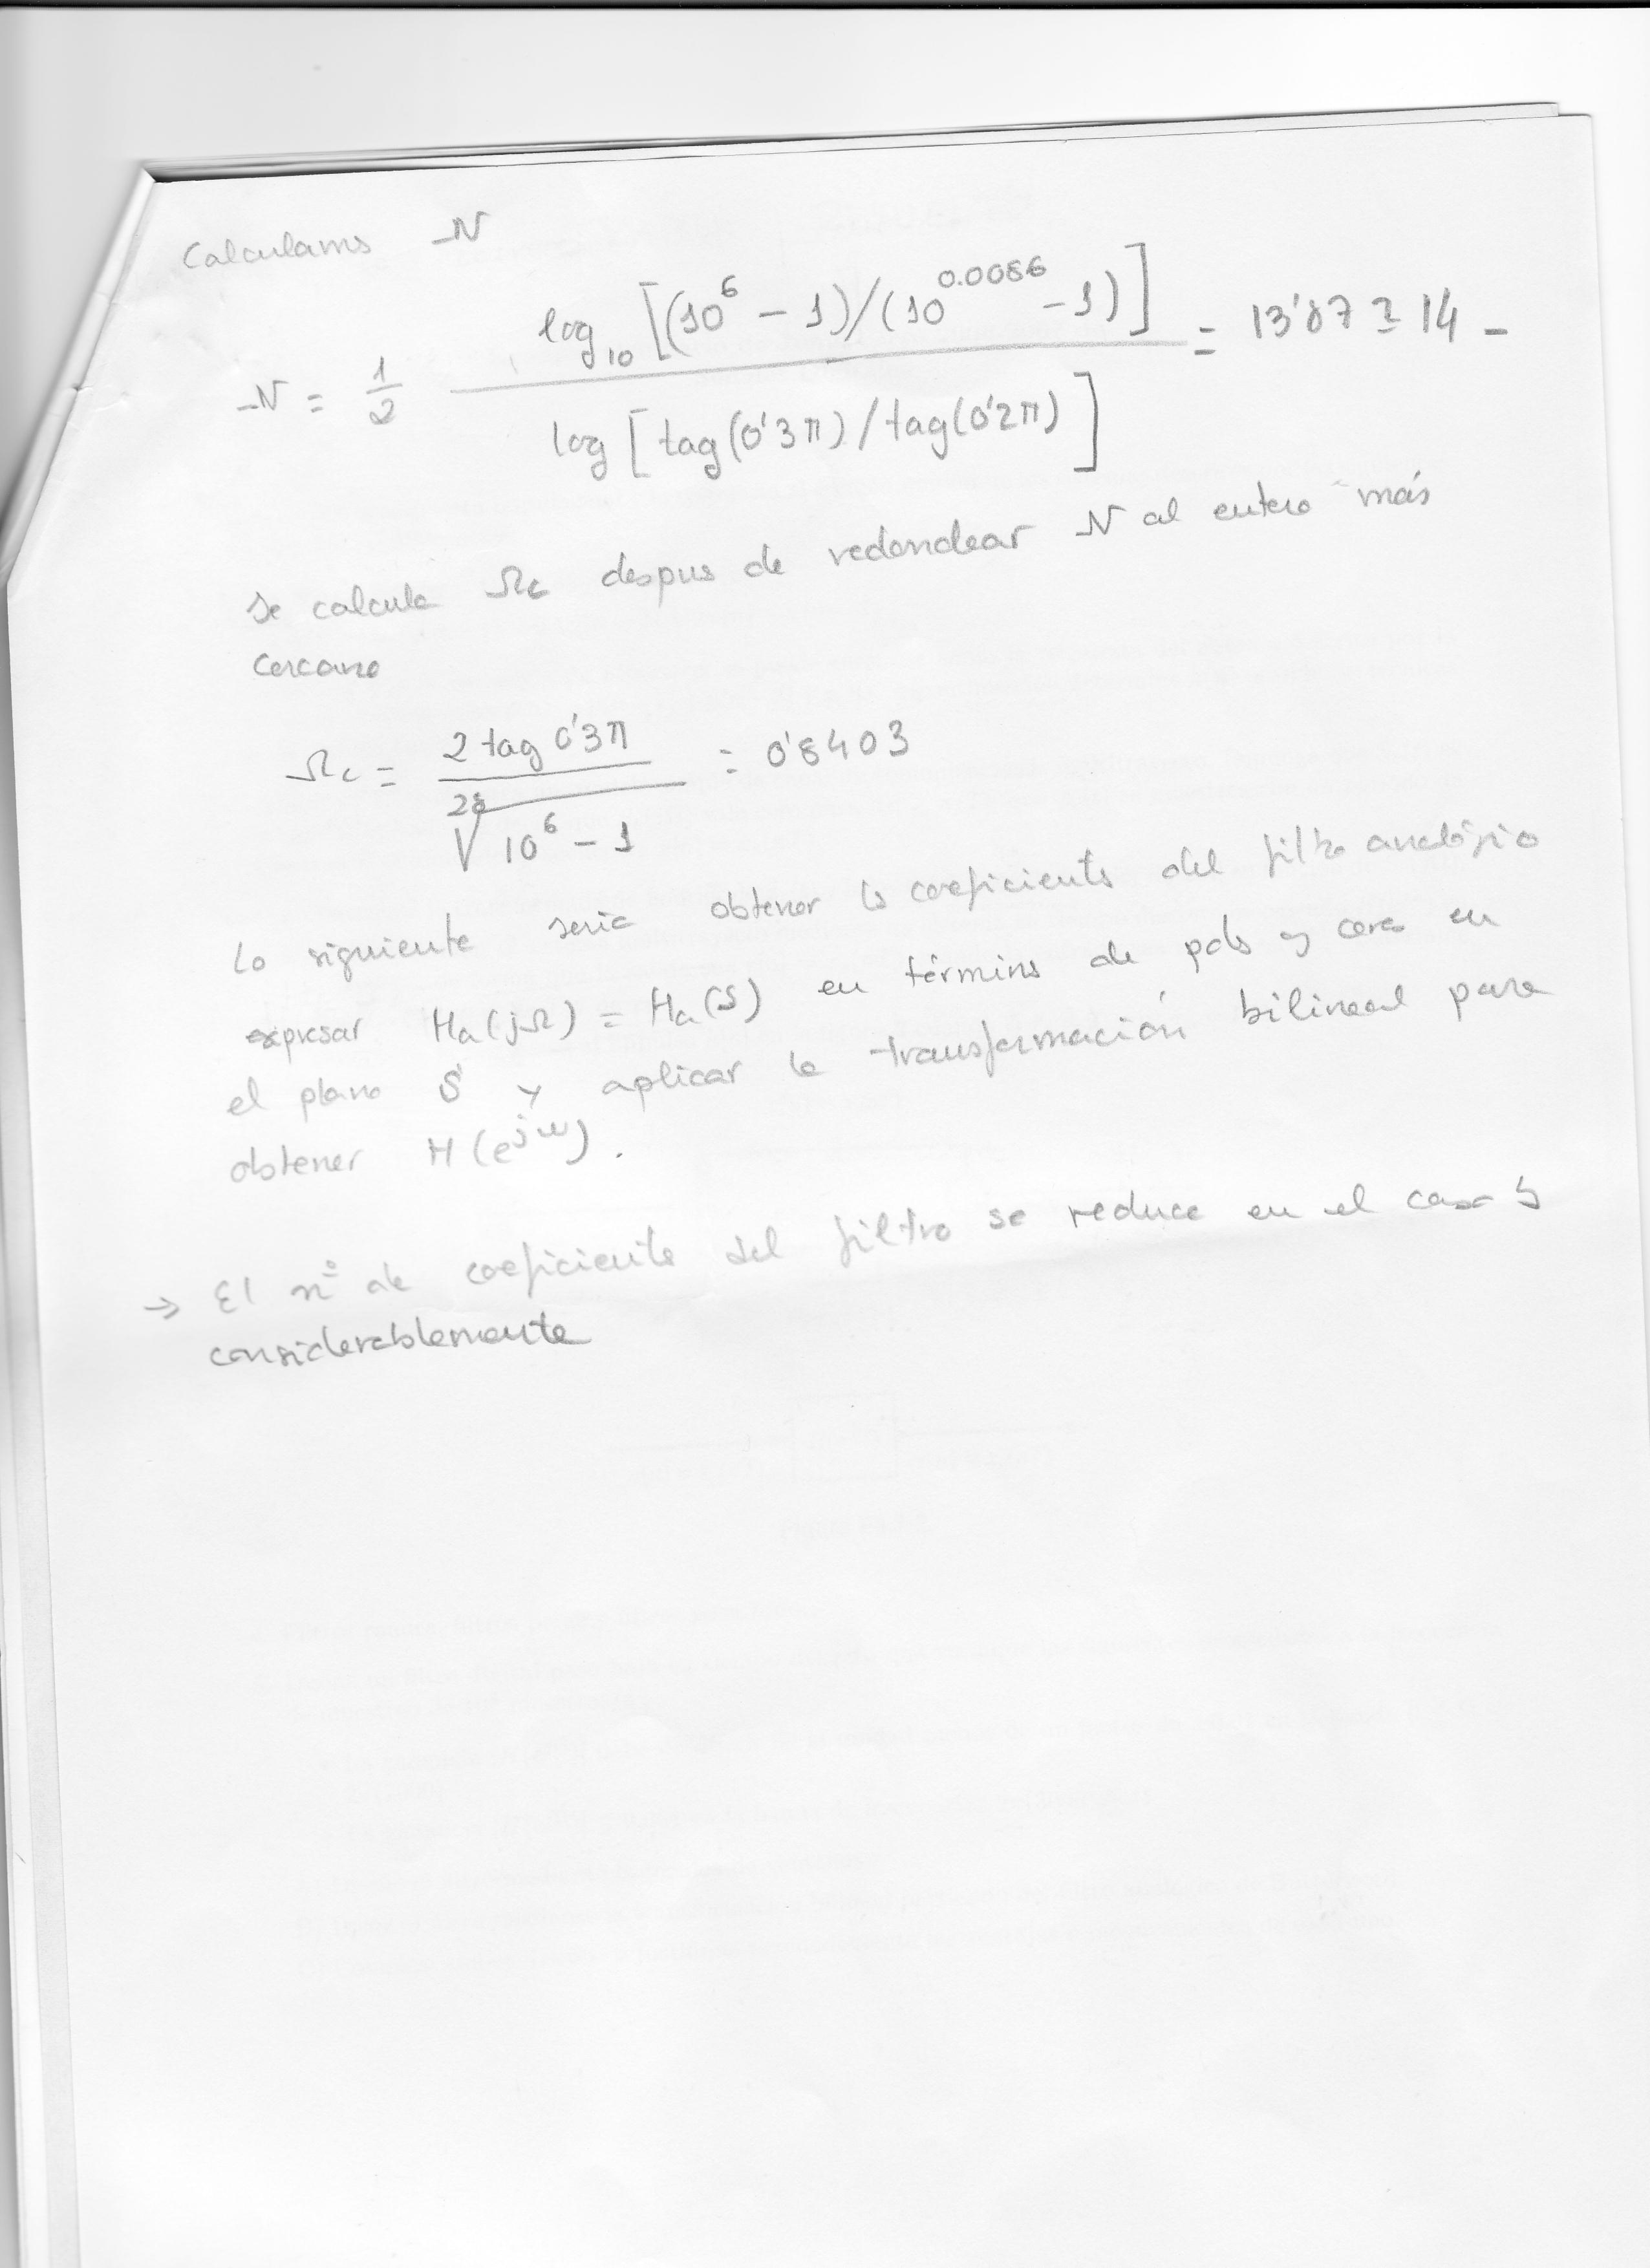 Calculams N
N = 1/2 log10 [(10^6 - 1)/(10^0.0086 - 1)] / log [tag(0'3π)/tag(0'2π)] = 13'87 ≃ 14 -
Se calcula Ωc despus de redondear N al entero más
cercano
Ωc = 2 tag 0'3π / ²⁸√(10^6 - 1) = 0'8403
Lo siguiente seria obtener ls coeficients del filtro analógico
expresar Ha(jΩ) = Ha(S) en términs de pols y ceros en
el plano S y aplicar la transformación bilineal para
obtener H(e^jω).
→ El nº de coeficients del filtro se reduce en el caso b
considerablemente